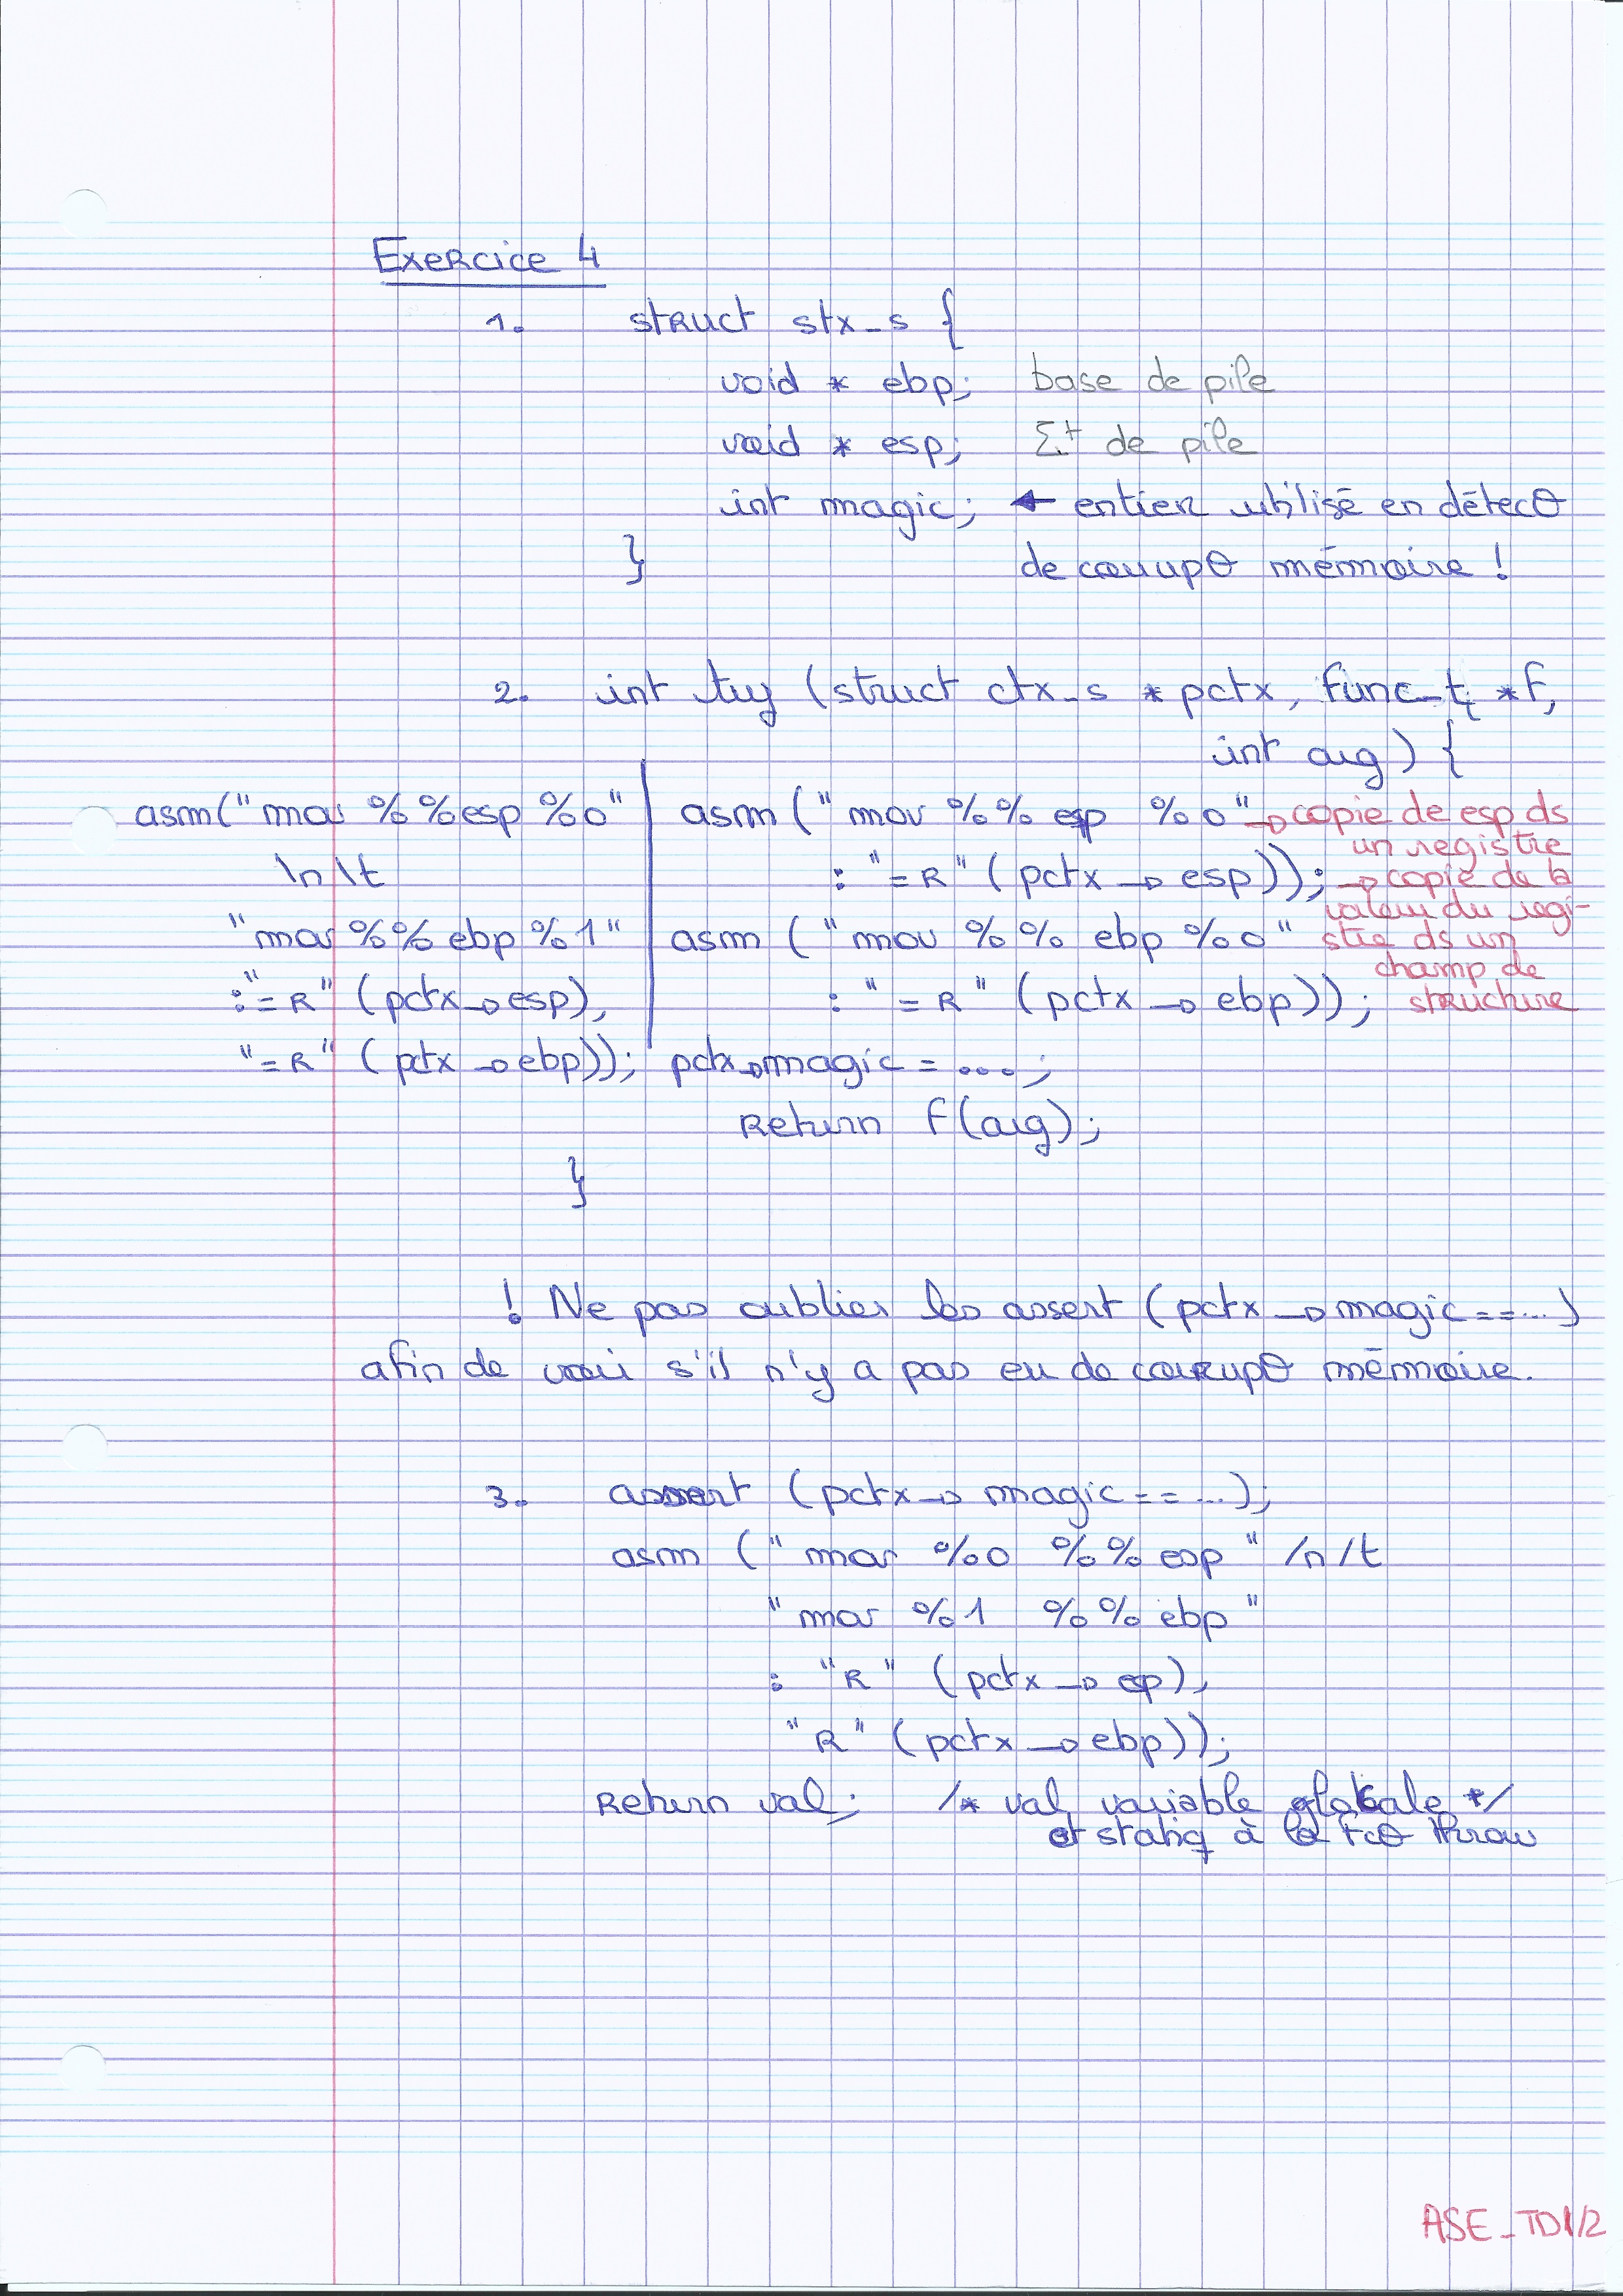 Exercice 4
1. struct stx_s {
void * ebp; base de pile
void * esp; de pile
int magic; ← entier utilisé en détecθ
} de corrupθ mémoire !
2. int try (struct ctx_s * pctx, func_t *f,
int arg) {
asm("mov %%esp %0"
\n\t
"mov %%ebp %1"
:"=R" (pctx→esp),
"=R" (pctx→ebp));
asm ("mov %%esp %0"
: "=R" (pctx→esp));
asm ("mov %%ebp %0"
: "=R" (pctx→ebp));
→ copie de esp ds
un registre
→ copie de la
valeur du regi-
stre ds un
champ de
structure
pctx→magic = ...;
Return f(arg);
}
! Ne pas oublier les assert (pctx→magic==...)
afin de voir s'il n'y a pas eu de corrupθ mémoire.
3. assert (pctx→magic==...);
asm ("mov %0 %%esp" /n/t
"mov %1 %%ebp"
: "R" (pctx→esp),
"R" (pctx→ebp));
Return val; /* val variable globale */
et statiq à la fcθ throw
ASE_TD1/2